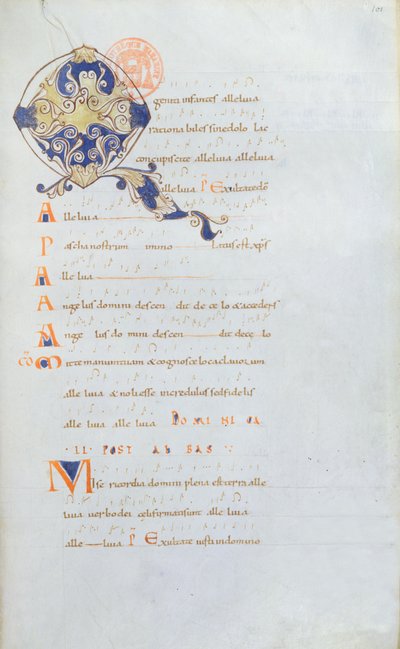 101
Q
geniti infantes alleluia
rationabiles sine dolo lac
concupiscite alleluia alleluia
alleluia P Exultate dō
Alleluia
Pascha nostrum immo latus est xp̄s
Alleluia
Angelus domini descen dit de celo & accedens
Angelus domini descen dit de ce lo
CŌ Mitte manum tuam & cognosce loca clauorum
alleluia & noli esse incredulus sed fidelis
alleluia alleluia DOMINICA
II POST ALBAS
Misericordia domini plena est terra alle
luia uerbo dei celi firmati sunt alleluia
alle luia P Exultate iusti in domino